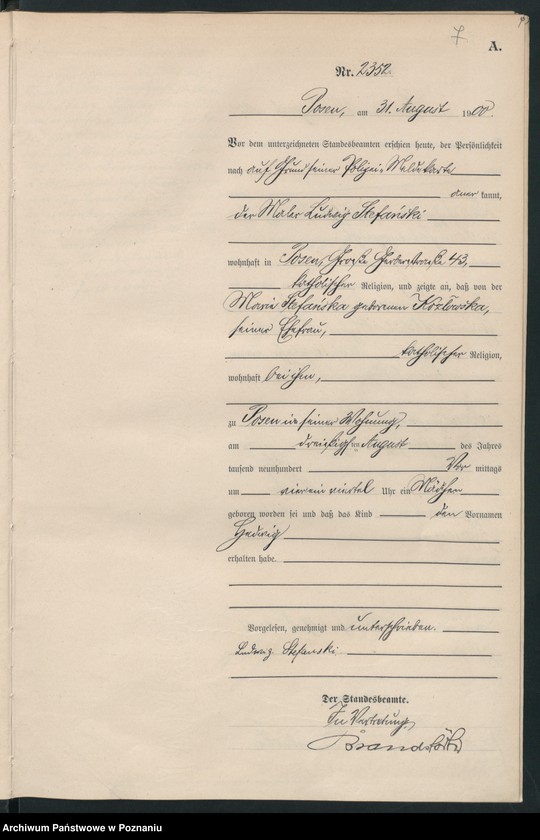 7
A.
Nr. 2352.
Posen, am 31. August 1900.
Vor dem unterzeichneten Standesbeamten erschien heute, der Persönlichkeit
nach auf Grund seiner Polizei-Meldekarte
aner kannt,
der Maler Ludwig Stefański
wohnhaft in Posen, Große Gerberstraße 43,
katholischer Religion, und zeigte an, daß von der
Marie Stefańska geborenen Kozłowska,
seiner Ehefrau,
katholischer Religion,
wohnhaft bei ihm,
zu Posen in seiner Wohnung,
am dreißigsten August des Jahres
tausend neunhundert Vor mittags
um vier ein viertel Uhr ein Mädchen
geboren worden sei und daß das Kind den Vornamen
Hedwig
erhalten habe.
Vorgelesen, genehmigt und unterschrieben.
Ludwig Stefanski
Der Standesbeamte.
In Vertretung
Archiwum Państwowe w Poznaniu